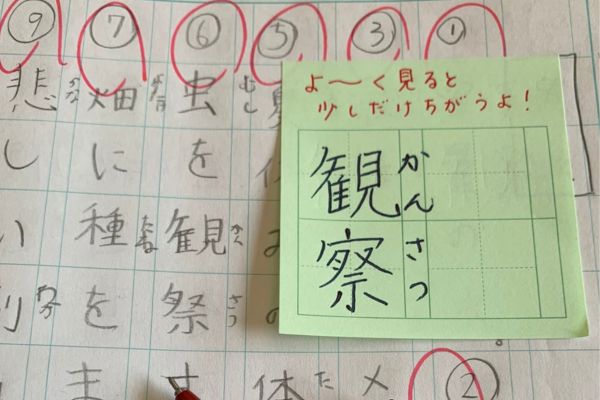 よ〜く見ると
少しだけちがうよ!
観察
かんさつ
①
②
③
⑤
体
⑥
虫を観祭す
むし
さつ
⑦
畑に種をま
たね
⑨
悲しい
かな